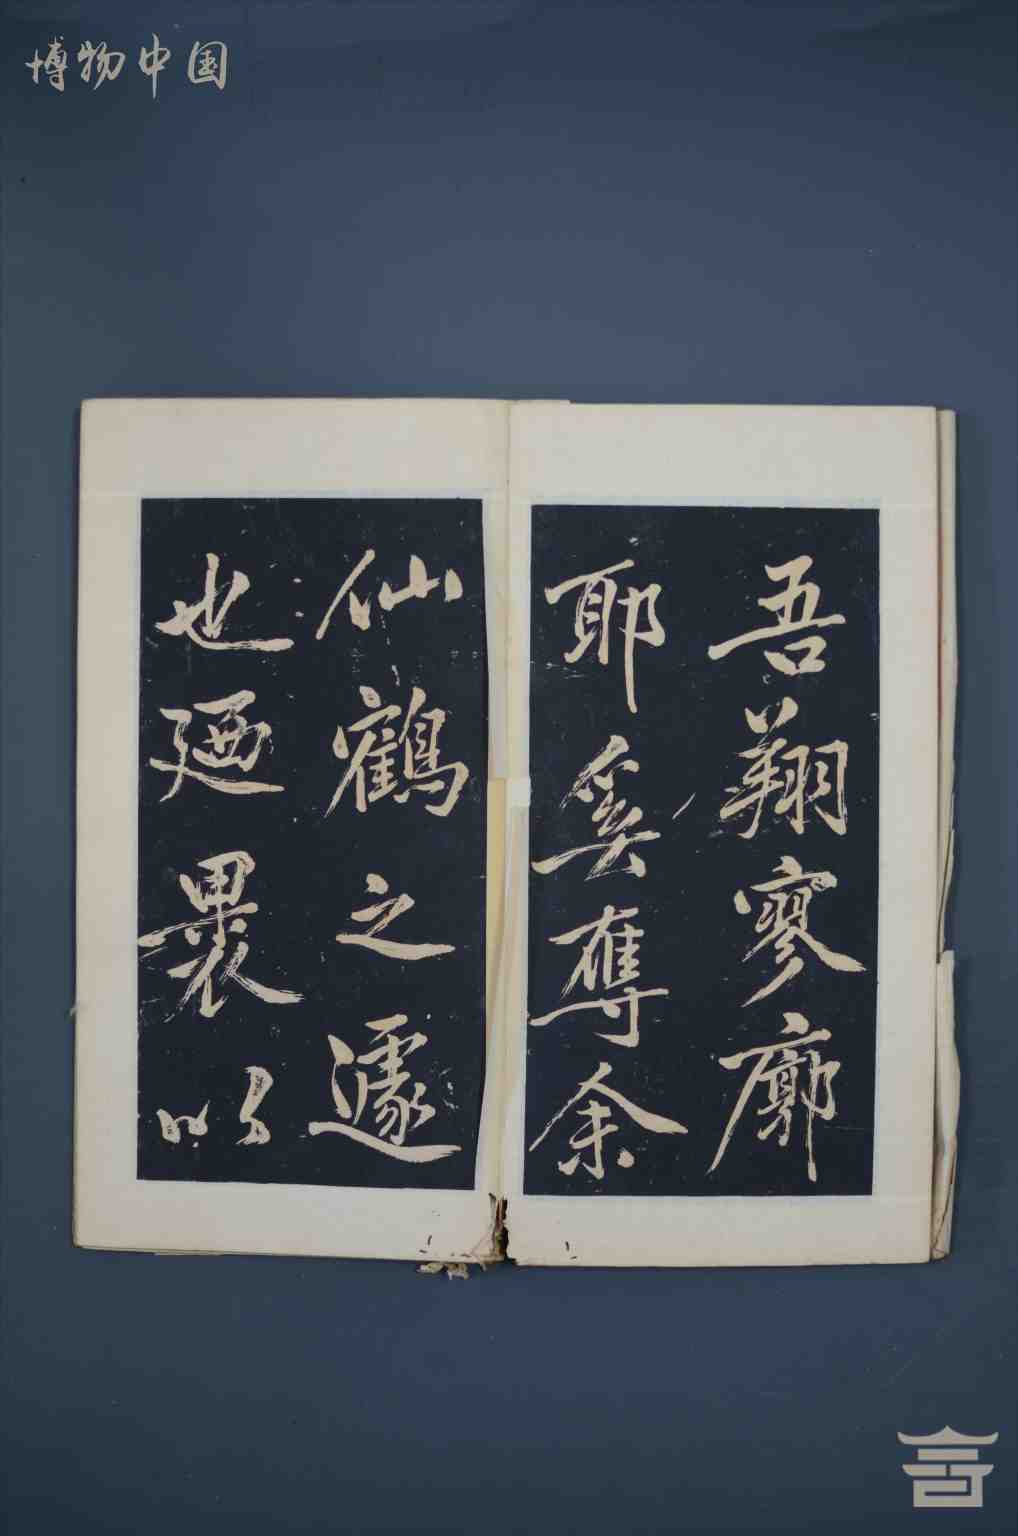 博物中国
吾翔寥廓
耶奚奪余
仙鶴之遽
也廼裹以